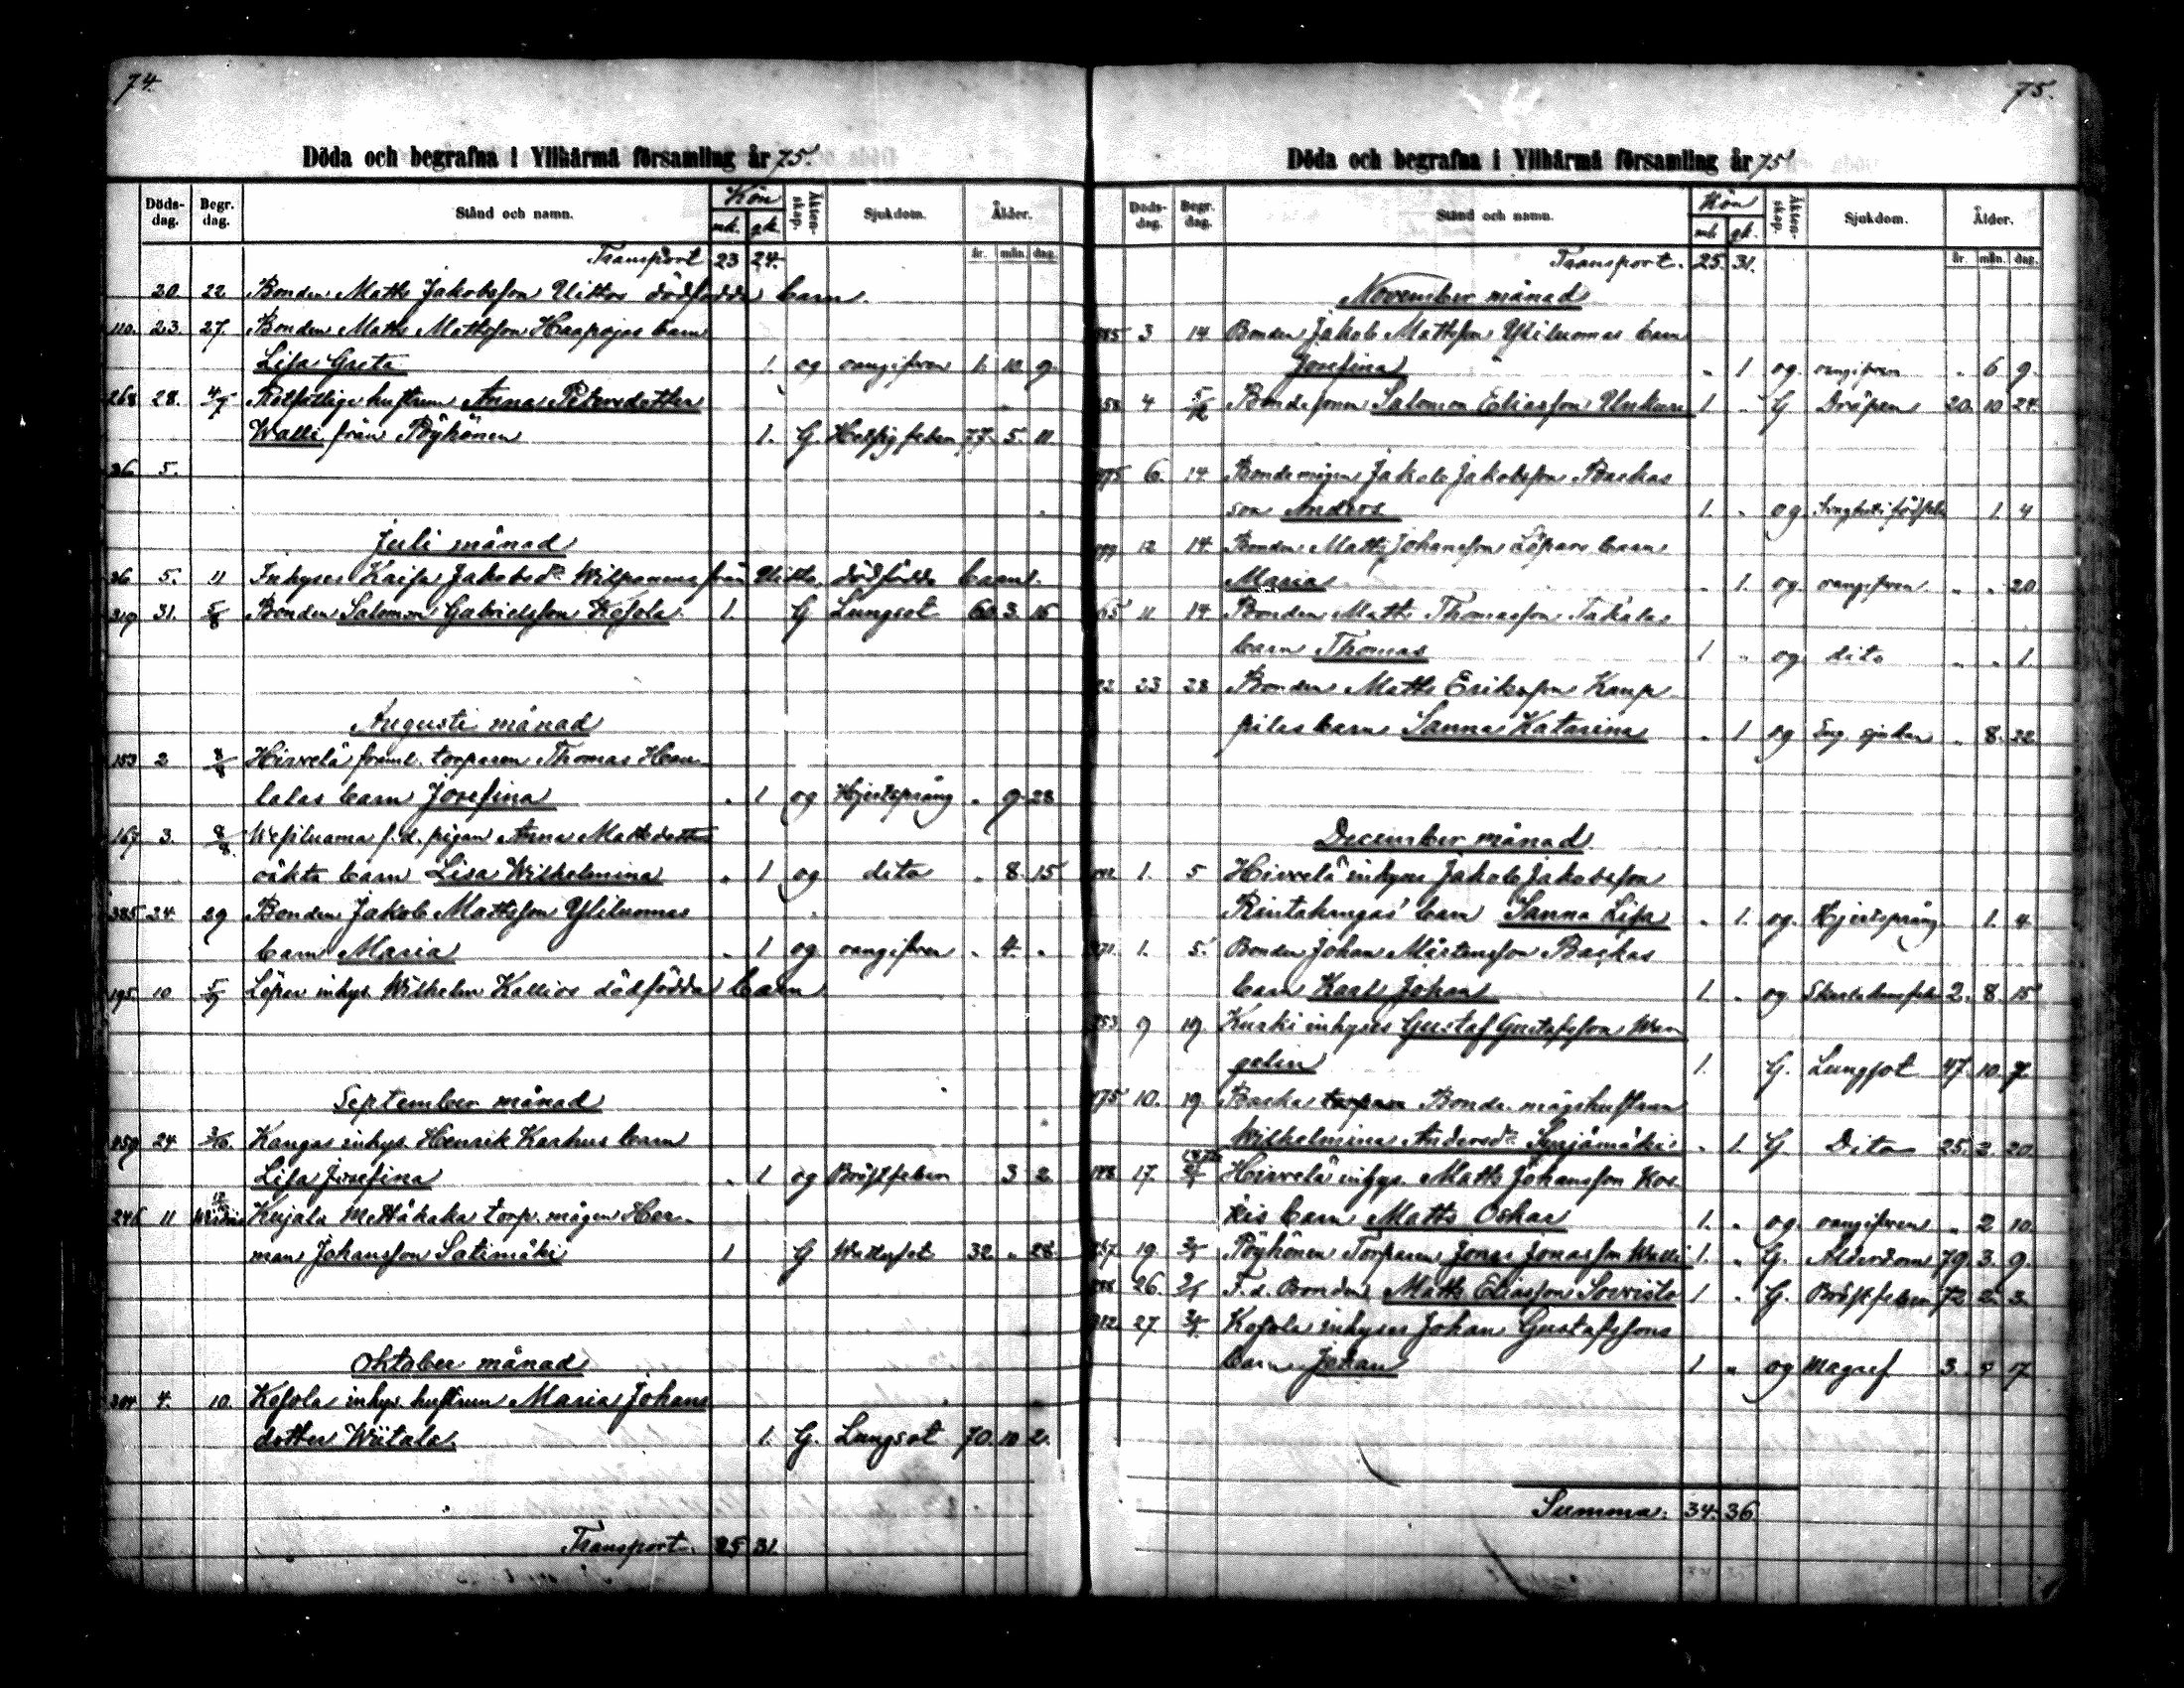 74.
Döda och begrafna i Ylihärmä församling år 75.
Döds-dag. Begr. dag. Stånd och namn. Kön mk. qk. Äktenskap. Sjukdom. Ålder. år. mån. dag.
Transport 23 24.
20. 22 Bonden Matts Jakobsson Uittos dödfödda barn.
110. 23. 27. Bonden Matts Mattsson Haapojas barn
Lisa Greta 1. og oangifven 1. 10. 9.
268 28. 4/7 Rotfattige hustrun Anna Petersdotter
Walli från Pöyhönen 1. G. 77. 5. 11.
36 5.
Juli månad
36 5. 11 Inhyses Kaisa Jakobsdr Wilponens från Uitto dödfödda barn.
319 31. 5/8 Bonden Salomon Gabrielsson Kosola 1. G Lungsot 60. 3. 16.
Augusti månad
153 2 8/8 Hirvelä framl. torparen Thomas Hau-
lalas barn Josefina " 1 og Hjertsprång " 9 28
167 3. 8/8. Wesiluoma f.d. pigan Anna Mattsdotters
oäkta barn Lisa Wilhelmina " 1 og dito " 8. 15
385 24 29 Bonden Jakob Mattsson Yliluomas
barn Maria " 1 og oangifven " 4. "
195. 10 5/9 Löper inhys. Wilhelm Kallios dödfödda barn
September månad
459 24. 3/10. Kangas inhys. Henrik Karhus barn
Lisa Josefina " 1 og Bröstfeber 3 2
246 11 Kujala Mettäkaha torp. mågen Her-
man Johansson Satimäki 1 G Wattusot 32 " 28.
Oktober månad
304 4. 10. Kosola inhys. hustrun Maria Johans
dotter Wiitala. 1. G. Lungsot 70. 10 2.
Transport. 25 31.
75.
Döda och begrafna i Ylihärmä församling år 75
Döds-dag. Begr. dag. Stånd och namn. Kön mk. qk. Äktenskap. Sjukdom. Ålder. år. mån. dag.
Transport. 25. 31.
November månad
385 3 14 Bonden Jakob Mattsson Yliluomas barn
Josefina " 1 og. oangifven " 6 9.
4 5/12 Bondesonen Salomon Eliasson Unkuri 1. " G Dråpen 20. 10 24.
475 6. 14 Bondemågen Jakob Jakobsson Backas
son Anders 1. " og 1. 4
12 14. Bonden Matts Johansson Löpars barn
Maria " 1. og oangifven " " 20
65 11 14. Bonden Matts Thomasson Takalas
barn Thomas 1 " og. dito " " 1.
22 23 28 Bonden Matts Eriksson Kaup-
pilas barn Sanna Katarina " 1 og Eng. sjukan " 8. 22.
December månad
1. 5 Hirvelä inhyses Jakob Jakobsson
Rintakangas' barn Sanna Lisa " 1. og. Hjertsprång 1. 4
471. 1. 5. Bonden Johan Mårtensson Backas
barn Karl Johan 1. " og 2. 8. 15
353. 9 19. Kurki inhyses Gustaf Gustafsson Wan
gelin 1. G. Lungsot 47. 10. 7
475 10. 19. Backa torpare Bonde mågshustrun
Wilhelmina Andersdr Syrjämäki " 1. G. Dito 25. 2. 20.
17. Hirvelä inhys. Matts Johansson Kos-
kis barn Matts Oskar 1. " og. oangifven " 2 10.
19. 2/1 Pöyhönen Torparen Jonas Jonasson Walli 1. " G. Ålderdom 79. 3. 9.
26. 2/1 F.d. Bonden Matts Eliasson Sorvisto 1 " G. Bröstfeber 72 2. 3.
312 27. Kosola inhyses Johan Gustafssons
barn Johan 1 " og Magref 3. 17.
Summa: 34. 36.